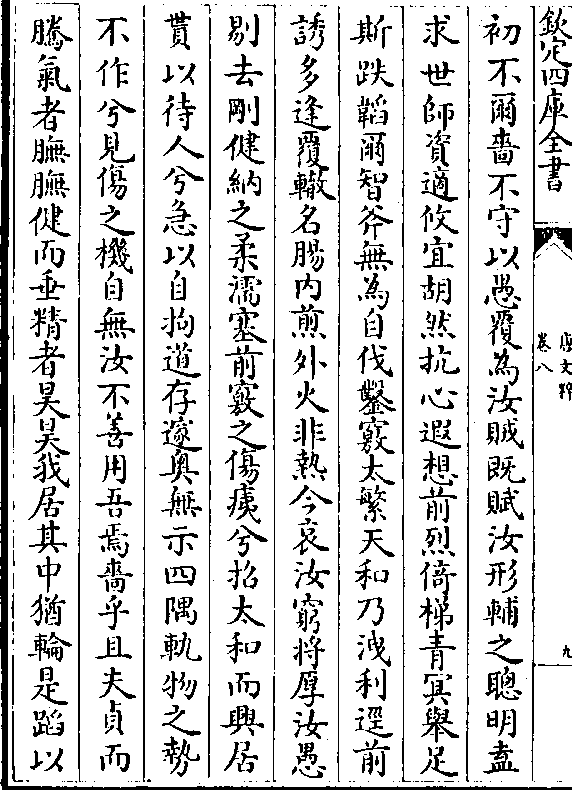 欽定四庫全書
唐文粹
卷八
九
初不爾嗇不守以愚覆為汝賊既賦汝形輔之聰明盍
求世師資適攸宜胡然抗心遐想前烈倚梯青冥舉足
斯跌韜爾智斧無為自伐鑿竅太繁天和乃洩利逕前
誘多逢覆轍名腸内煎外火非熱今哀汝窮將厚汝愚
剔去剛健納之柔濡塞前竅之傷痍兮招太和而興居
貰以待人兮急以自拘道存邃奥無示四隅軌物之勢
不作兮見傷之機自無汝不善用吾焉嗇乎且夫貞而
騰氣者膴膴健而垂精者昊昊我居其中猶輪是蹈以